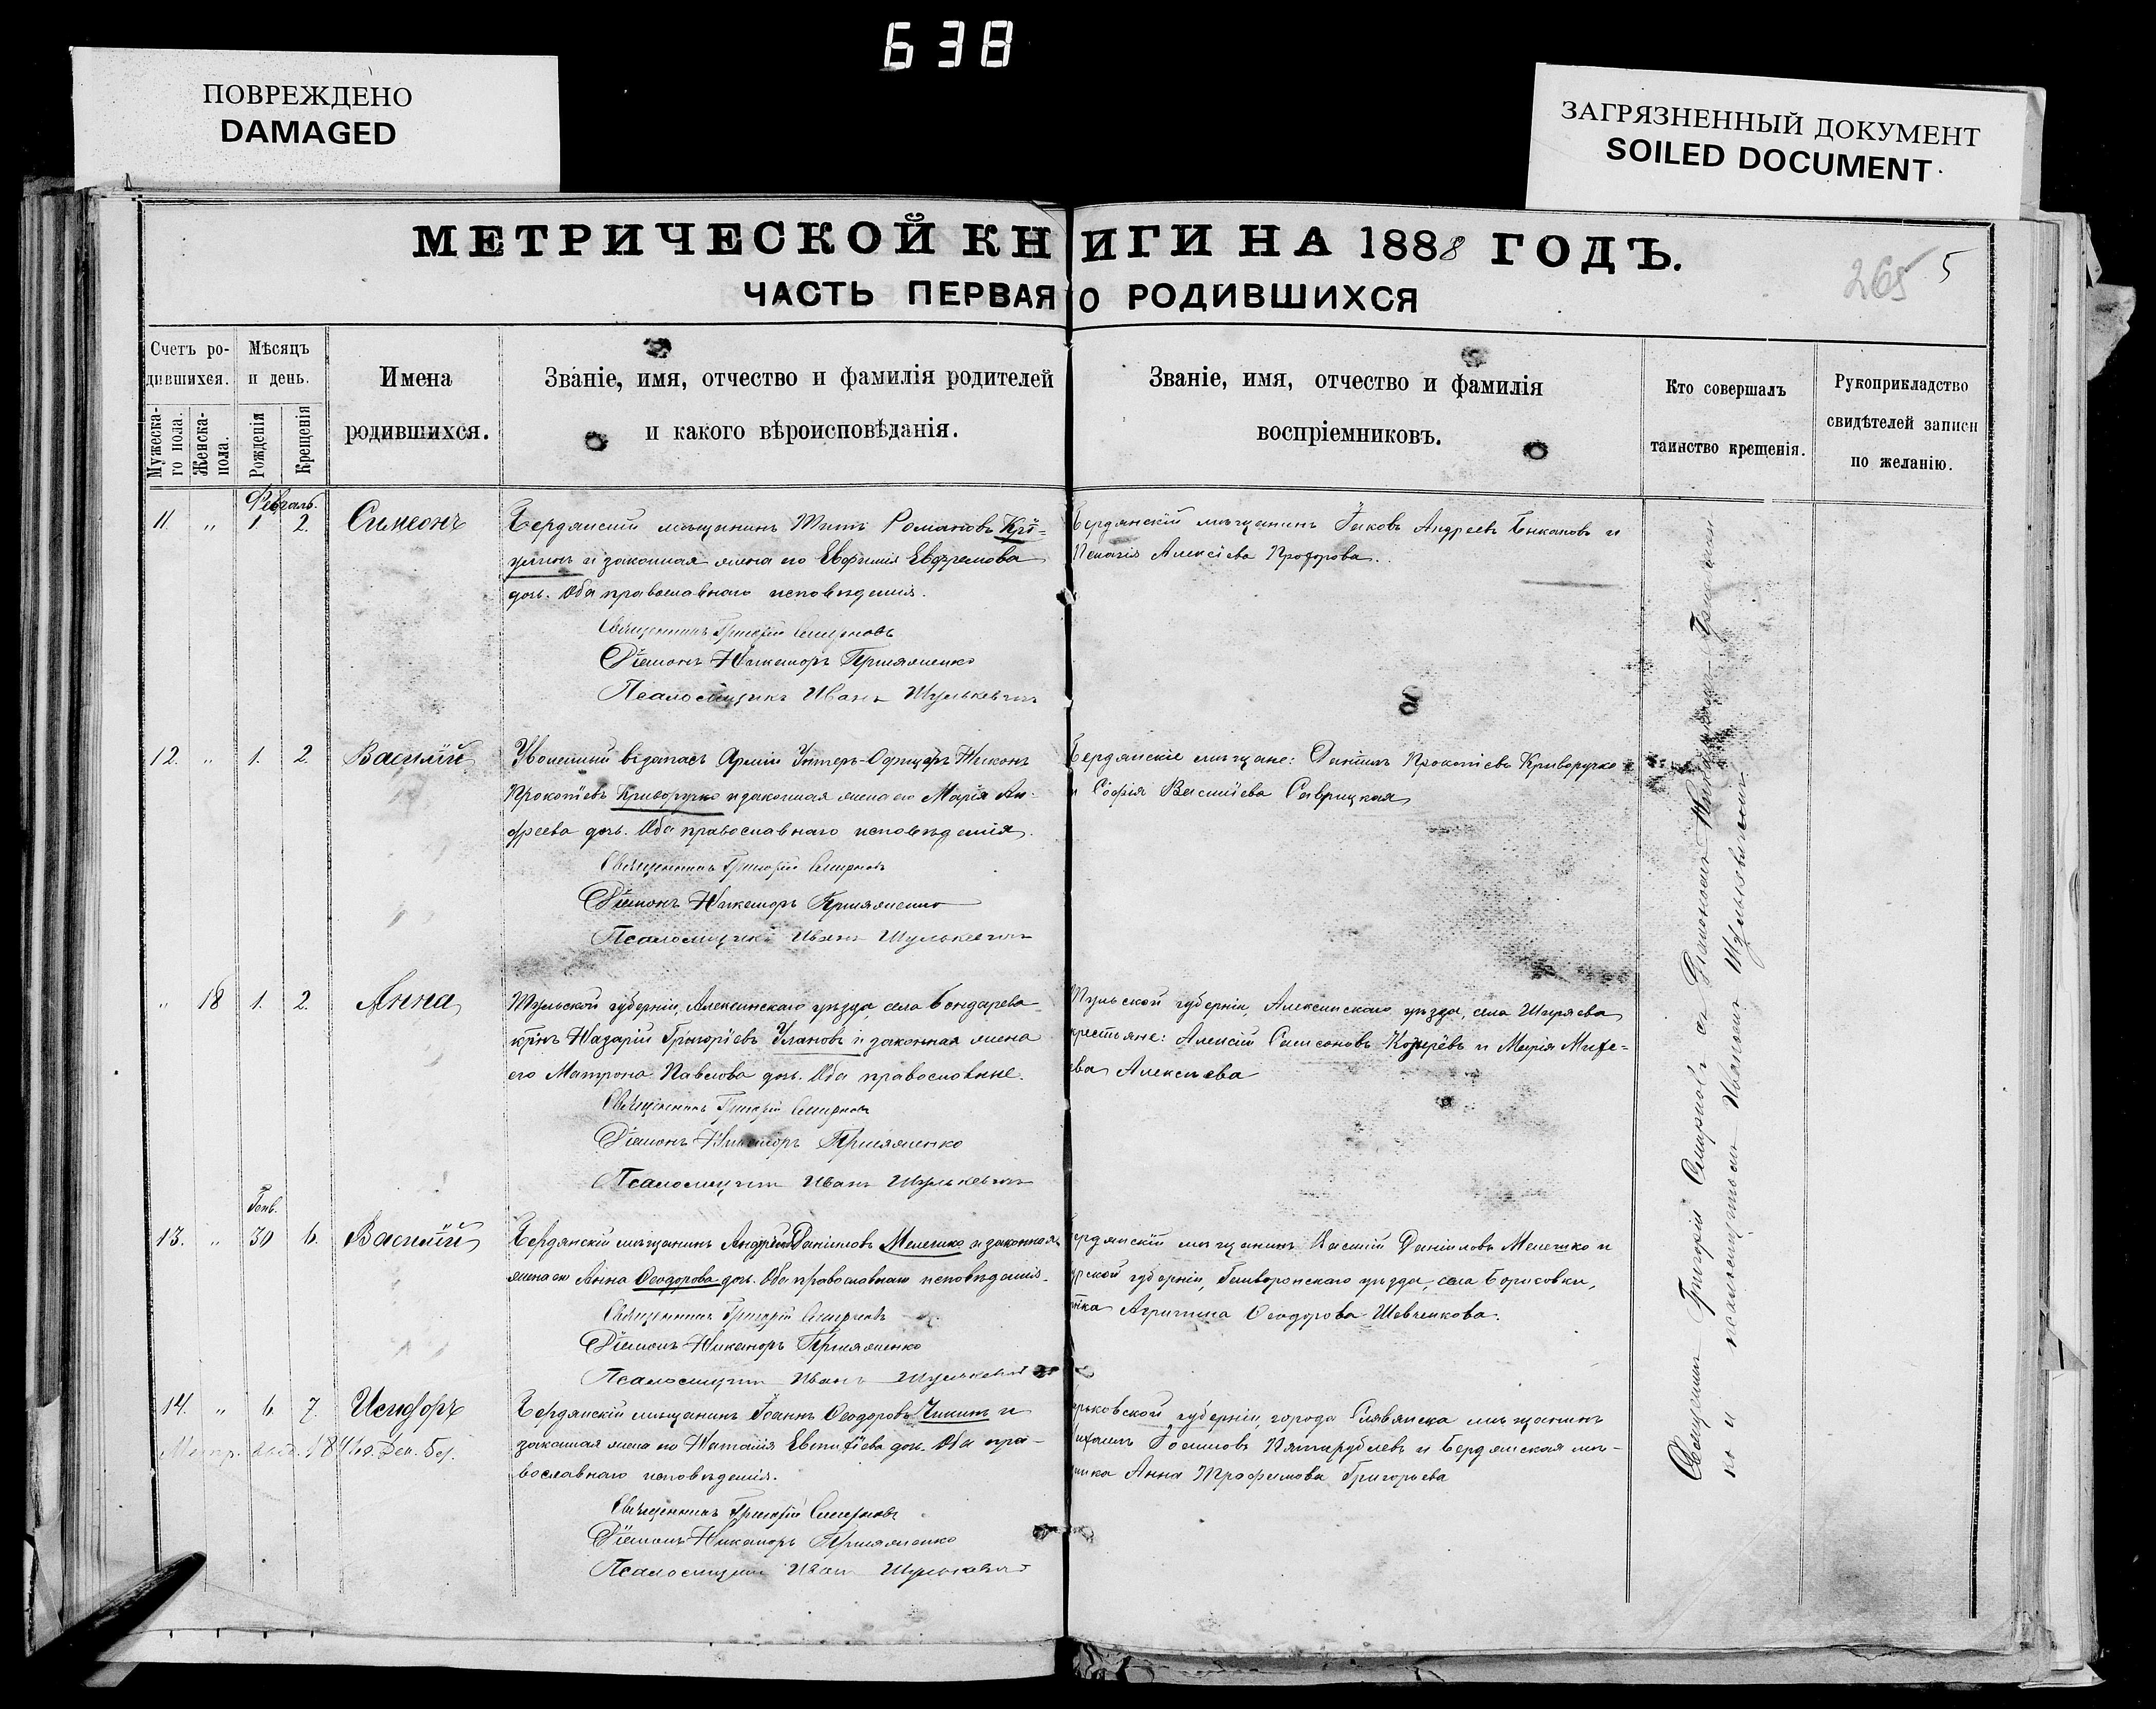 638
ПОВРЕЖДЕНО
DAMAGED
ЗАГРЯЗНЕННЫЙ ДОКУМЕНТ
SOILED DOCUMENT
МЕТРИЧЕСКОЙ КНИГИ НА 1888 ГОДЪ.
265 5
ЧАСТЬ ПЕРВАЯ О РОДИВШИХСЯ
Счетъ ро-
дившихся.
Мужеска-
го пола.
Женска-
пола.
Мѣсяцъ
и день.
Рожденія
Крещенія
Имена
родившихся.
Званіе, имя, отчество и фамилія родителей
и какого вѣроисповѣданія.
Званіе, имя, отчество и фамилія
воспріемниковъ.
Кто совершалъ
таинство крещенія.
Рукоприкладство
свидѣтелей записи
по желанію.
Февраль.
11. " 1. 2. Симеонъ
Бердянскій мѣщанинъ Титъ Романовъ
и законная жена его Евфимія Евфремова
дочь. Оба православнаго исповѣданія.
Священникъ Григорій Смирновъ
Діаконъ Никаноръ
Псаломщикъ Иванъ Шулькевичъ
Бердянскій мѣщанинъ Іаковъ Андреевъ и
Пелагія Алексіева Прохорова.
12. " 1. 2. Василій
Уволенный въ запасъ Арміи Унтеръ-Офицеръ Никонъ
Прокопіевъ Криворучко и законная жена его Марія Ан-
дреева дочь. Оба православнаго исповѣданія.
Священникъ Григорій Смирновъ
Діаконъ Никаноръ
Псаломщикъ Иванъ Шулькевичъ
Бердянскіе мѣщане: Даніилъ Прокопіевъ Криворучко
и Софія Васильева Саврицкая
" 18 1. 2. Анна
Тульской губерніи, Алексинскаго уѣзда, села Бондарева
кр-нъ Назарій Григоріевъ Улановъ и законная жена
его Матрона Павлова дочь. Оба православные.
Священникъ Григорій Смирновъ
Діаконъ Никаноръ
Псаломщикъ Иванъ Шулькевичъ
Тульской губерніи, Алексинскаго уѣзда, села Ширяева
крестьяне: Алексій Самсоновъ Козыревъ и Марія Михе-
ева Алексѣева
Генв.
13. " 30 6. Василій
Бердянскій мѣщанинъ Андрей Даніиловъ Мелешко и законная
жена его Анна Ѳеодорова дочь. Оба православнаго исповѣданія.
Священникъ Григорій Смирновъ
Діаконъ Никаноръ
Псаломщикъ Иванъ Шулькевичъ
Бердянскій мѣщанинъ Василій Даніиловъ Мелешко и
Курской губерніи, Грайворонскаго уѣзда, села Борисовки,
Агрипина Ѳеодорова Шевченкова.
14. " 6. 7. Исидоръ
Бердянскій мѣщанинъ Іоаннъ Ѳеодоровъ Чикинъ и
законная жена его Наталія дочь. Оба пра-
вославнаго исповѣданія.
Священникъ Григорій Смирновъ
Діаконъ Никаноръ
Псаломщикъ Иванъ Шулькевичъ
Харьковской губерніи города Славянска мѣщанинъ
Михаилъ Пятирублевъ и Бердянская мѣ-
щанка Анна Трофимова Григорьева
Священникъ Григорій Смирновъ съ Діакономъ Никаноромъ
ко и псаломщикомъ Иваномъ Шулькевичемъ.